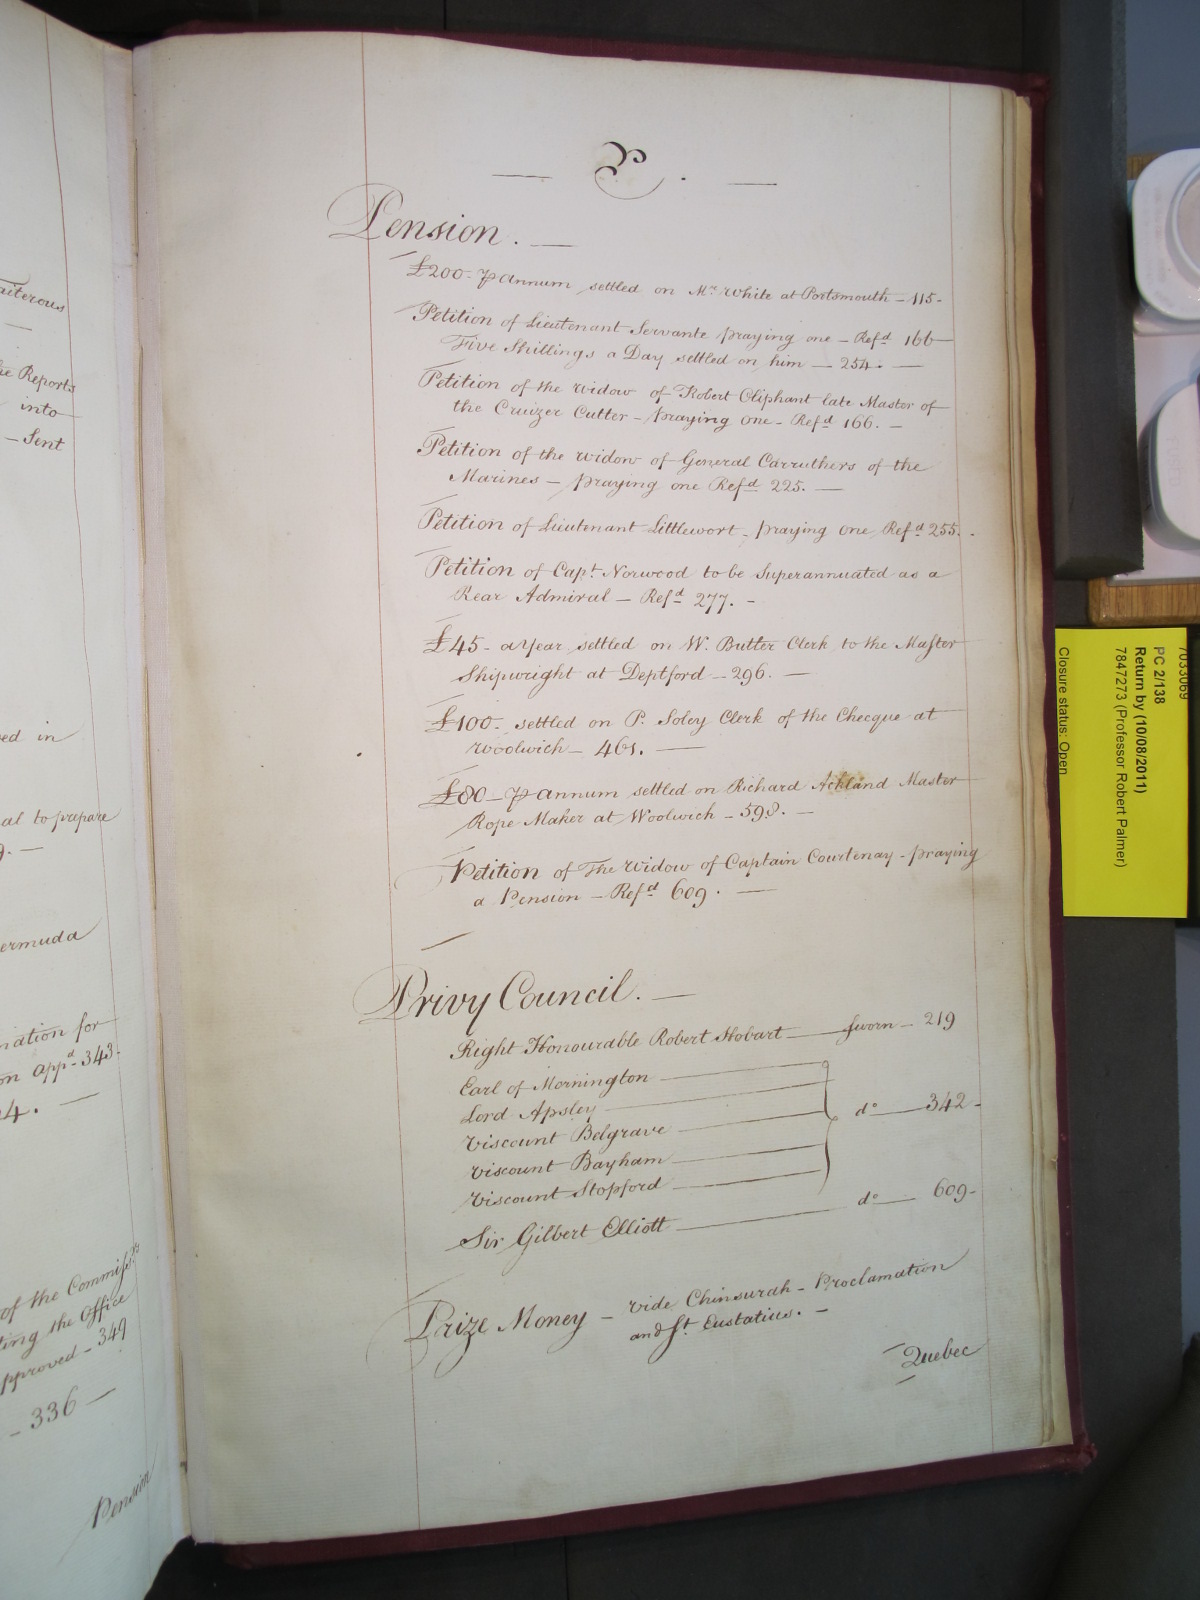 aiterous
he Reports
into
– Sent
ed in
al to prepare
9. —
ermuda
nation for
on appd. 343.
4. —
of the Commissrs
ting the Office
pproved – 349
– 336 —
Pension
— P. —
Pension. —
£200 – P annum settled on Mr. White at Portsmouth – 115 –
Petition of Lieutenant Servante praying one – Refd 166 —
Five Shillings a Day settled on him — 254. —
Petition of the Widow of Robert Oliphant late Master of
the Cruizer Cutter – praying one – Refd 166. –
Petition of the Widow of General Carruthers of the
Marines – praying one Refd 225. —
Petition of Lieutenant Littlewort – praying one Refd 255. –
Petition of Capt. Norwood to be Superannuated as a
Rear Admiral – Refd 277. –
£45 – a Year settled on W. Butter Clerk to the Master
Shipwright at Deptford – 296. —
£100 – settled on P. Soley Clerk of the Checque at
Woolwich – 461. —
£80 – P annum settled on Richard Ackland Master
Rope Maker at Woolwich – 598. —
Petition of The Widow of Captain Courtenay – praying
a Pension – Refd 609. —
Privy Council. —
Right Honourable Robert Hobart — Sworn – 219
Earl of Mornington
Lord Apsley
Viscount Belgrave do — 342 –
Viscount Bayham
Viscount Stopford
Sir Gilbert Elliott — do — 609 –
Prize Money – Vide Chinsurah – Proclamation
and St. Eustatius. –
Quebec
7033069
PC 2/138
Return by (10/08/2011)
7847273 (Professor Robert Palmer)
Closure status: Open